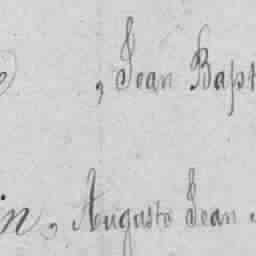 , Jean Bapt
in, Auguste Jean